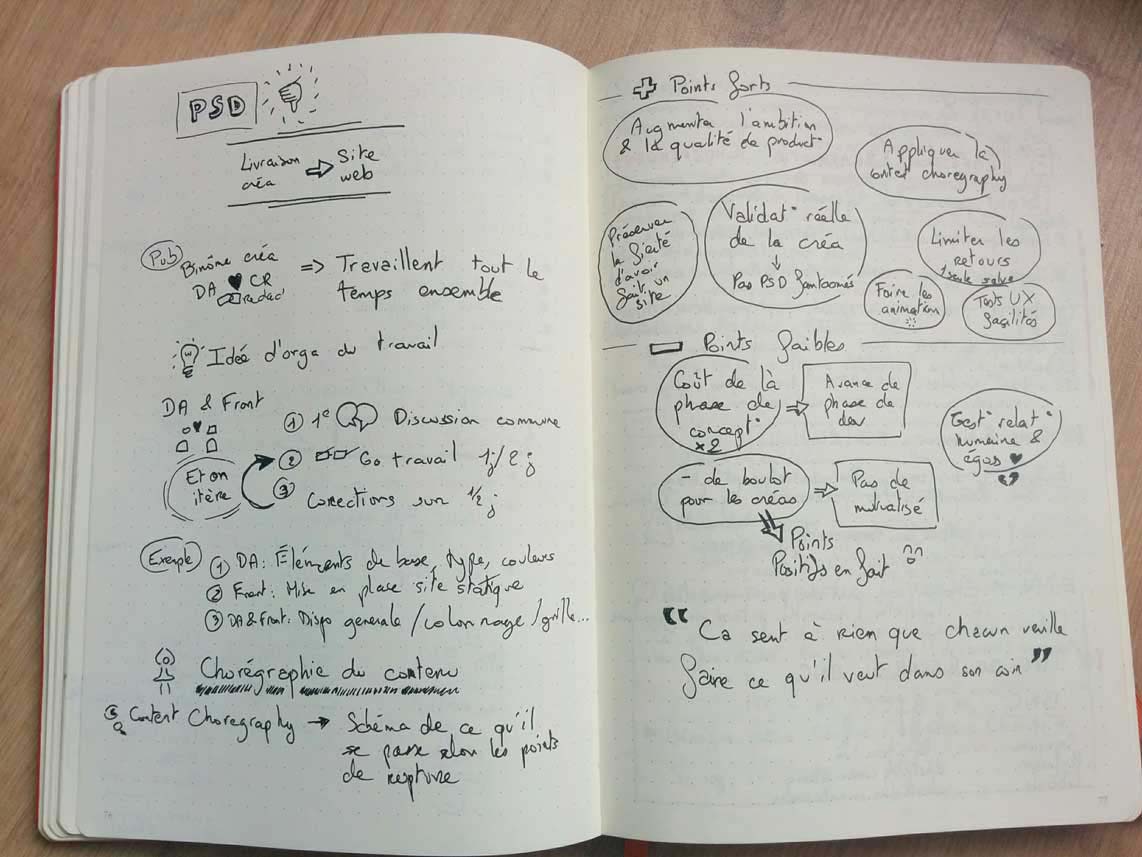 PSD
Livraison
créa
Site
web
Pub
Binôme créa
DA CR
redac'
=> Travaillent tout le
temps ensemble
Idée d'orga du travail
DA & Front
① 1e Discussion commune
② Go travail 1j/2j
③ Corrections sur 1/2 j
Et on
itère
Exemple
① DA: Éléments de base, type, couleurs
② Front: Mise en place site statique
③ DA & Front: Dispo generale / colonnage / grille...
Chorégraphie du contenu
Content Choregraphy → Schéma de ce qu'il
se passe selon les points
de rupture
76
Points forts
Augmenter l'ambition
& la qualité de product°
Appliquer la
contet choregraphy
Préserver
la fierté
d'avoir
fait un
site
Validat° réelle
de la créa
↓
Pas PSD fantasmés
Limiter les
retours
1 seule salve
Faire les
animation
Tests UX
facilités
Points faibles
Coût de là
phase de
concept°
x2
Avance de
phase de
dev
Gest° relat°
humaine &
égos
- de boulot
pour les créas
Pas de
mutualisé
Points
Positifs en fait
“ Ca sert à rien que chacun veuille
faire ce qu'il veut dans son coin ”
77